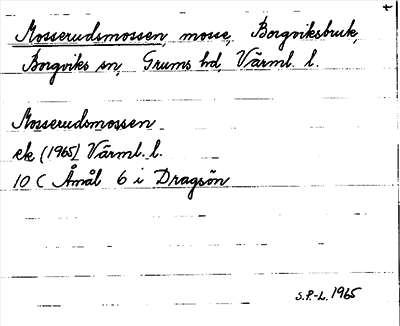 Mosserudsmossen, mosse, Borgviksbruk,
Borgviks sn, Grums hd, Värml. l.
Mosserudsmossen
ek (1965) Värml. l.
10 C Åmål 6 i Dragsön
S.P.-L. 1965